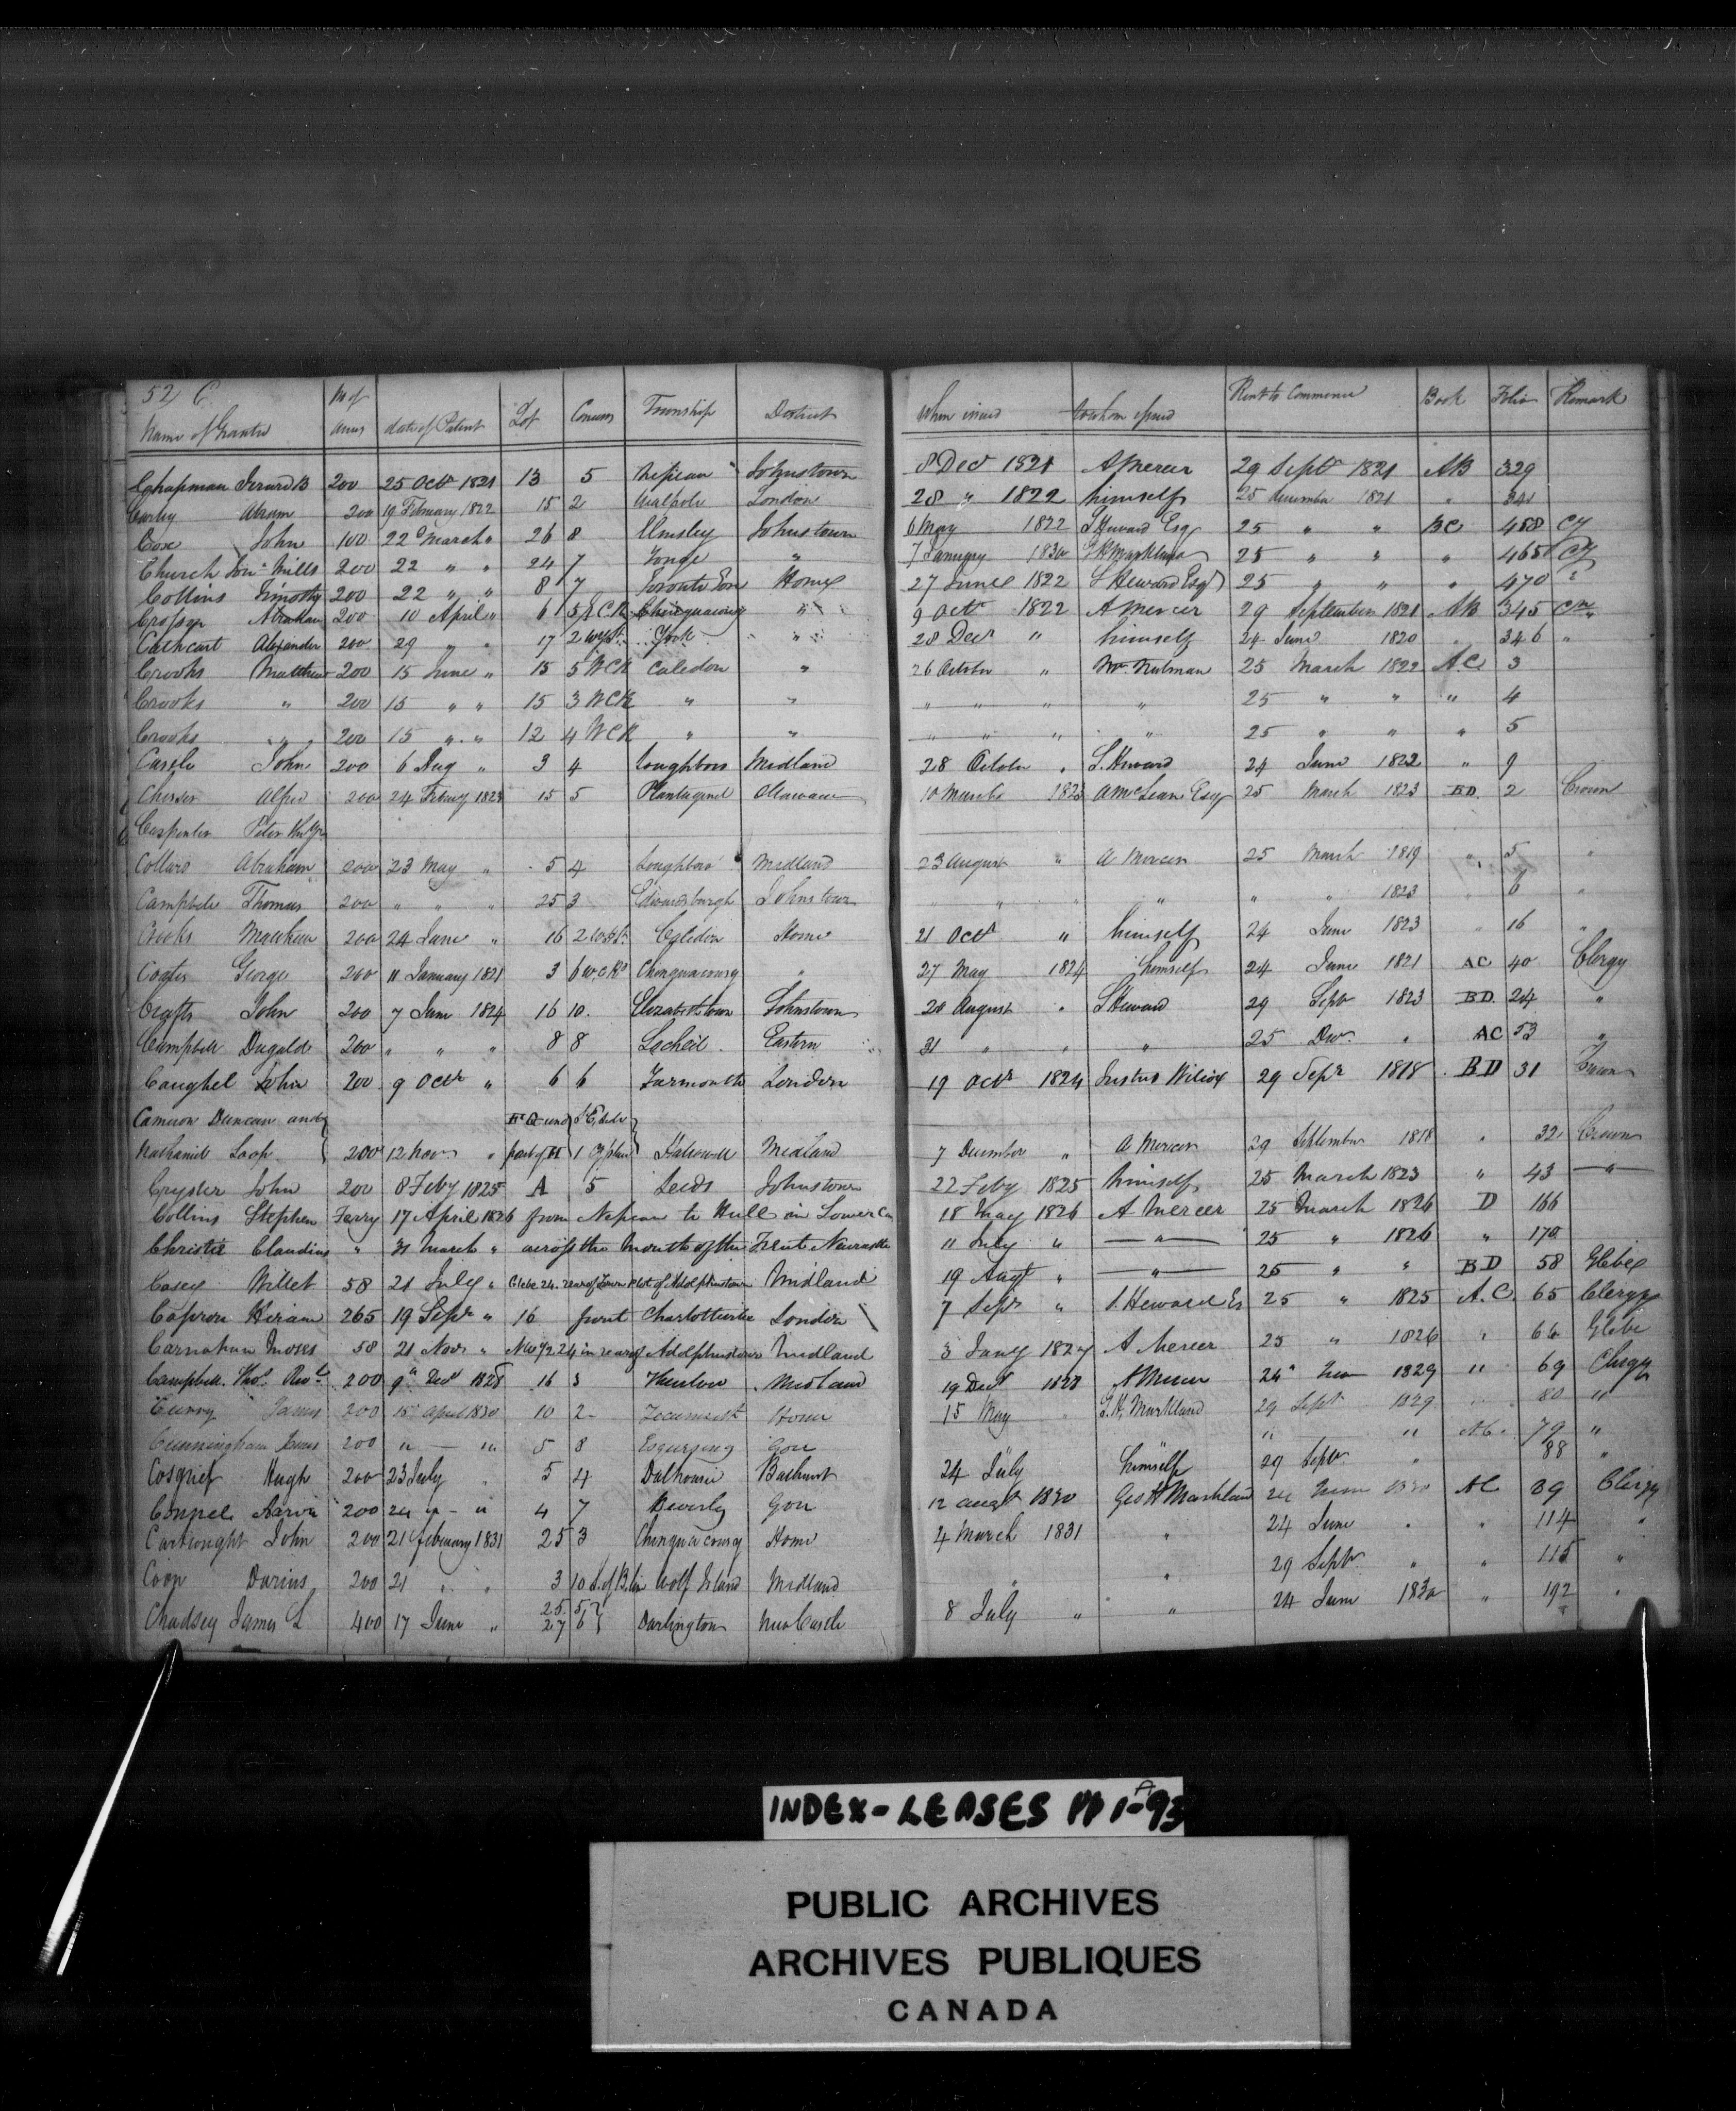 52 C.
Name of Grantee No of acres date of Patent Lot Concess Township District When issued to whom issued Rent to Commence Book Folio Remark
Chapman 200 25 Octr 1821 13 5 Nepean Johnstown 8 Decr 1821 A Mercer 29 Septr 1821 AB 329
Abram 200 19 February 1822 15 2 Walpole London 28 " 1822 himself 25 December 1821 " 341
Cox John 100 22d March " 26 8 Elmsley Johnstown 6 May 1822 S Heward Esq 25 " " BC 458 Cy
Church Jonn Mills 200 22 " " 24 7 Yonge " 7 January 1830 G H Markland 25 " " " 465 Cy
Collins Timothy 200 22 " " 8 7 Toronto Home 27 June 1822 S Heward Esqr 25 " " " 470 "
Abraham 200 10 April " 6 5 Chinguacousy " 9 Octr 1822 A Mercer 29 September 1821 AB 345
Cathcart Alexander 200 29 " " 17 2 York " 28 Decr " himself 24 June 1820 " 346 "
Crooks Matthew 200 15 June " 15 5 WCR Caledon " 26 October " 25 March 1822 A.C 3
Crooks " 200 15 " " 15 3 WCR " " " " " " 25 " " " 4
Crooks " 200 15 " " 12 4 WCR " " " " " " 25 " " " 5
John 200 6 Aug " 3 4 Loughboro Midland 28 October " S. Heward 24 June 1822 " 9
Chesser Alfred 200 24 Febuy 1823 15 5 Plantagenet Ottawa 10 March 1823 A McLean Esqr 25 March 1823 BD. 2 Crown
Carpenter Peter
Collard Abraham 200 23 May " 5 4 Loughboro Midland 23 August " A Mercer 25 March 1819 " 5 "
Campbell Thomas 200 " " " 25 3 Edwardsburgh Johnstown " " " " " " 1823 " 6 "
Crooks Matthew 200 24 June " 16 2 Caledon Home 21 Octr " himself 24 June 1823 " 16 "
Coates George 200 11 January 1821 3 6 W.C.R. Chinguacousy " 27 May 1824 himself 24 June 1821 AC 40 Clergy
Crafts John 200 7 June 1824 16 10. Elizabethtown Johnstown 20 August " S Heward 29 Septr 1823 BD. 24 "
Campbell Dugald 200 " " " 8 8 Lochiel. Eastern 31 " " " 25 Decr. " AC 53 "
Caughel John 200 9 Octr " 6 6 Yarmouth London 19 Octr 1824 Justus Wilcox 29 Sepr 1818 BD 31 Crown
Cameron Duncan and
Nathaniel Loop 200 12 Novr " part of 1 Hallowell Midland 7 December " A Mercer 29 September 1818 " 32 Crown
Crysler John 200 8 Feby 1825 A 5 Leeds Johnstown 22 Feby 1825 himself 25 March 1823 " 43 "
Collins Stephen Ferry 17 April 1826 from Nepean to Hull in Lower Ca 18 May 1826 A Mercer 25 March 1826 D 166
Christie Claudius " 31 March " across the Mouth of the Trent Newcastle 11 July " " 25 " 1826 " 170
Casey Willet 58 21 July " Glebe 24. rear of Town Plot of Adolphustown Midland 19 Augt " " 25 " " BD 58 Glebe
Capron Hiram 265 19 Sepr " 16 front Charlotteville London 7 Sepr " S. Heward Es 25 " 1825 A.C. 65 Clergy
Carnahan Moses 58 21 Novr " 24 in rear of Adolphustown Midland 3 Jany 1827 A Mercer 25 " 1826 " 66 Glebe
Campbell. Thos. Revd. 200 9th Decr 1828 16 3 Thurlow Midland 19 Decr 1828 A Mercer 24th June 1829 " 69 Clergy
James 200 15 April 1830 10 2 Tecumseth Home 15 May G.H. Markland 29 Septr 1829 " 80 "
Cunningham James 200 " — " 5 8 Esquesing Gore " " AC. 79 "
Cosgrief Hugh 200 23 July " 5 4 Dalhousie Bathurst 24 July himself 29 Septr. " 88 "
200 24 " " 4 7 Beverly Gore 12 augt 1830 Geo H Markland 24 June 1830 AC 89 Clergy
Cartwright John 200 21 February 1831 25 3 Chinguacousy Home 4 March 1831 " 24 June " " 114 "
Coop Darius 200 21 " " 3 10 Wolf Island Midland " " 29 Septr " " 115 "
Chadsey James L 400 17 June " 25. 5 27 6 Darlington NewCastle 8 July " " 24 June 1830 " 192 "
INDEX-LEASES PP 1-93A
PUBLIC ARCHIVES
ARCHIVES PUBLIQUES
CANADA